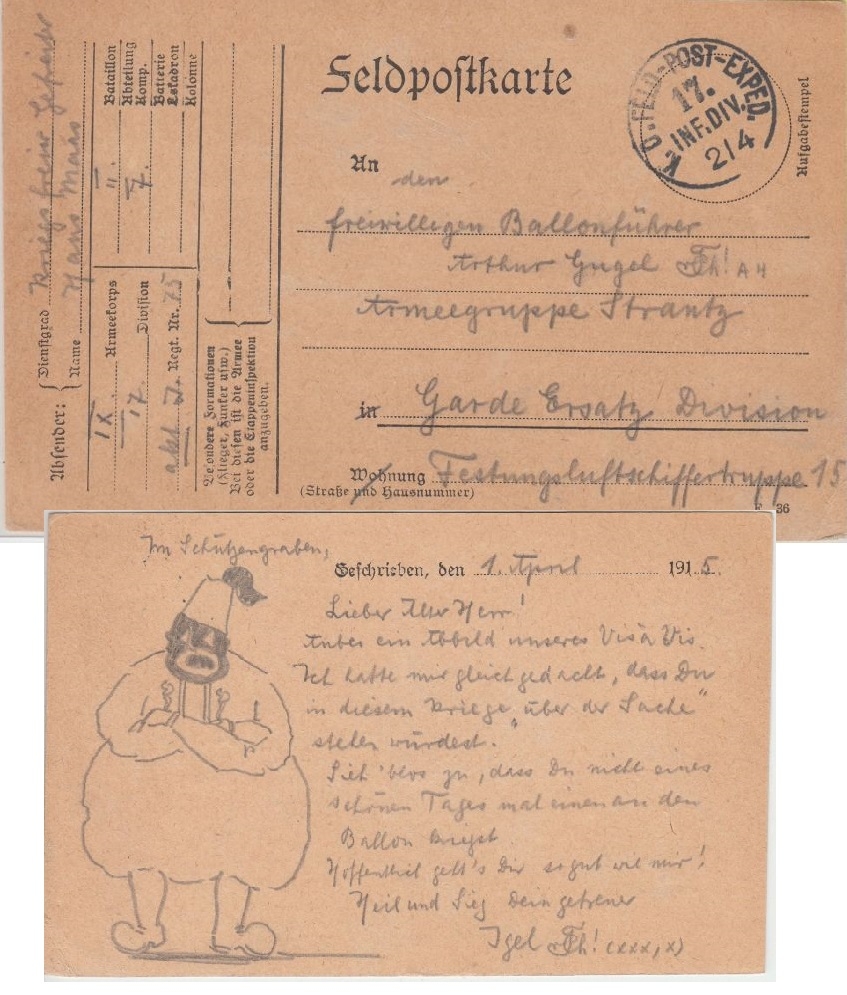 Feldpostkarte
K. D. FELD-POST-EXPED.
17.
INF. DIV.
2/4
Aufgabestempel
An den
freiwilligen Ballonführer
Arthur Gugel
Armeegruppe Strantz
in Garde Ersatz Division
Wohnung Festungsluftschiffertruppe 15
(Straße und Hausnummer)
Absender:
Dienstgrad Kriegsfreiw. Gefreiter
Name Hans
Bataillon II.
Abteilung
Komp. 7.
Batterie
Eskadron
Kolonne
IX Armeekorps
17. Division
Regt. Nr. 75
Besondere Formationen
(Flieger, Funker usw.)
Bei diesen ist die Armee
oder die Etappeninspektion
anzugeben.
Im Schützengraben,
Geschrieben, den 1. April 1915.
Lieber Alter Herr!
Anbei ein Abbild unseres Vis à Vis.
Ich hatte mir gleich gedacht, dass Du
in diesem Kriege „über der Sache"
stehen würdest.
Sieh' blos zu, dass Du nicht eines
schönen Tages mal einen an den
Ballon kriegst
Hoffentlich geht's Dir so gut wie mir!
Heil und Sieg Dein getreuer
Igel (xxx, x)